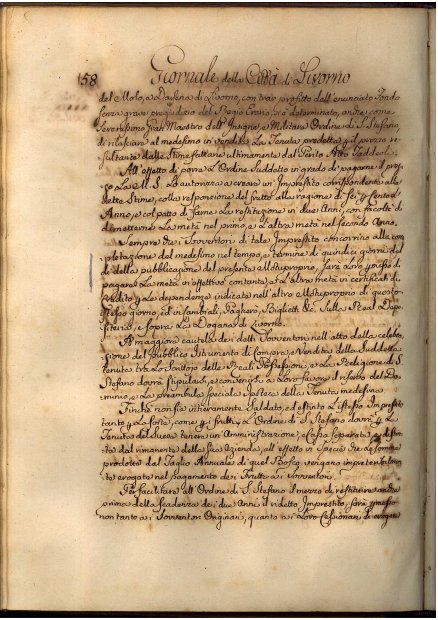 158 Giornale della Città di Livorno
del Molo, e Darsena di Livorno, con trar profitto dell'enunciato Fondo
senza grave pregiudizio del Regio Erario, ha determinato, anche come
Serenissimo Gran Maestro dell'Insigne, e Militare Ordine di S. Stefano,
di rilasciare al medesimo in vendita La Tenuta predetta p il prezzo re
sultante dalle Stime fattene ultimamente dal Perito Alto Taddei.
All'effetto di porre L'Ordine Suddetto in grado di pagarne il prez
zo La M. S. Lo autorizza a creare un Imprestito corrispondente alle
dette Stime, colla responsione del frutto alla ragione di Sei p Cento L'
Anno, e col patto di farne La restituzione in due Anni, con facoltà di
dimetterne La metà nel primo, e L'altra metà nel secondo Anno.
Sempre che i Sovventori di tale Imprestito concorrino alla com
pletazione del medesimo nel tempo, e termine di quindici giorni dal
dì della pubblicazione del presente Motuproprio, sarà Loro p̃messo di
pagare La metà in effettivo contante, e L'altra metà in certificati di
Credito p Le dependenze indicate nell'altro Motuproprio di questo
stesso giorno, ed in Cambiali, Pagherò, Biglietti &c. Sulla Real Depo
siteria, e sopra La Dogana di Livorno.
A maggior cautela dei detti Sovventori nell'atto della celebra
zione del Pubblico Istrumento di Compra, e Vendita della Suddetta
Tenuta tra Lo Scrittojo delle Reali Possessioni, e La Religione di S.
Stefano dovrà stipularsi, e convenirsi a Loro favore il riservo del Do
minio, e La preambula speciale Ipoteca della Tenuta medesima.
Finchè non sia intieramente Saldato, ed estinto L'istesso Imprestito
tanto p La sorte, come p i frutti, L'Ordine di S. Stefano dovrà p La
Tenuta del Suese tenere un'Amministrazione, e Cassa separata, e distin
ta dal rimanente della sua Azienda, all'effetto in specie che le somme
prodotte dal Taglio Annuale di quel Bosco vengano impreteribilmen
te erogate nel pagamento dei Frutti ai Sovventori.
Per facilitare all'Ordine di S. Stefano il mezzo di restituire anche
prima della Scadenza dei due Anni il ridetto Imprestito, sarà p̃messo
non tanto ai Sovventori Originari, quanto ai Loro Cessionari, di erogare